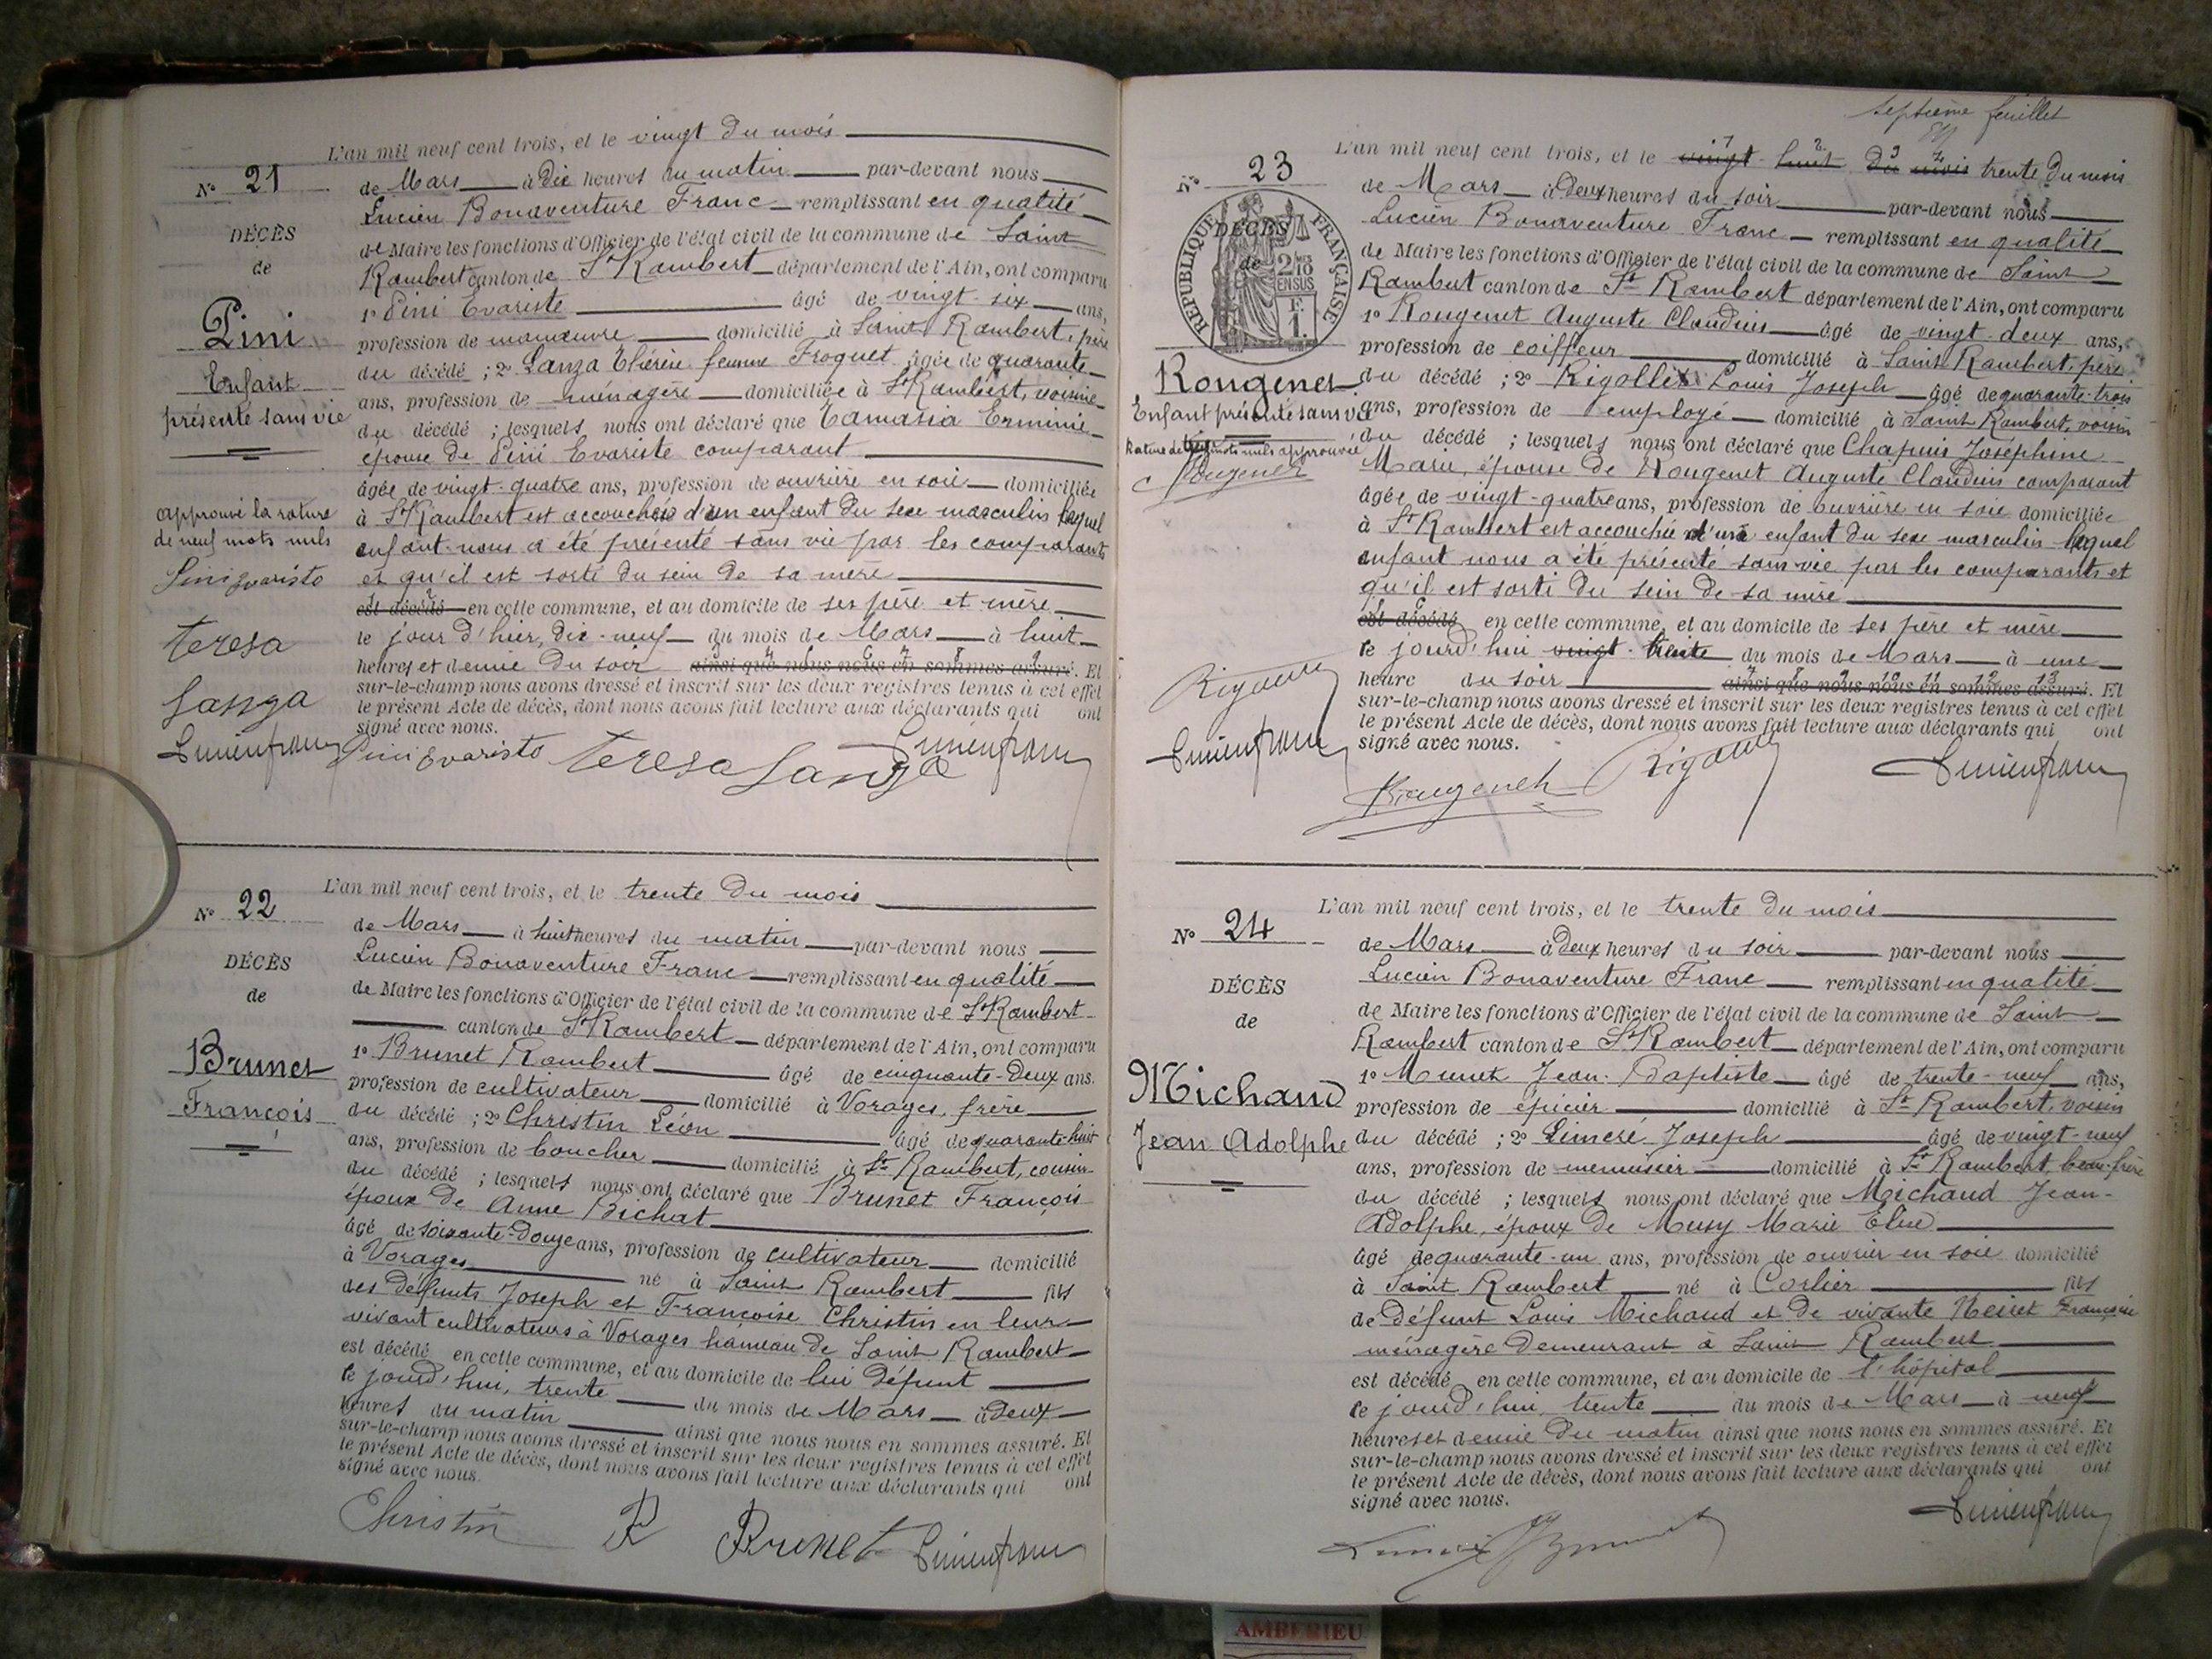 L'an mil neuf cent trois, et le vingt du mois
N° 21
de Mars à dix heures du matin par-devant nous
Lucien Bonaventure Franc remplissant en qualité
DÉCÈS
de Maire les fonctions d'Officier de l'état civil de la commune de Saint
de
Rambert canton de St Rambert département de l'Ain, ont comparu
1° Pini Evariste âgé de vingt-six ans,
Pini
profession de manœuvre domicilié à Saint Rambert, père
du décédé ; 2° Lanza Thérèse femme Froquet âgée de quarante
Enfant
ans, profession de ménagère domiciliée à St Rambert, voisine
présenté sans vie
du décédé ; lesquels nous ont déclaré que Tamasia Erminie
épouse de Pini Evariste comparant
âgée de vingt-quatre ans, profession de ouvrière en soie domiciliée
approuvé la rature
à St Rambert est accouchée d'un enfant du sexe masculin lequel
de neuf mots nuls
enfant nous a été présenté sans vie par les comparants
Pini Evaristo
et qu'il est sorti du sein de sa mère
est décédé en cette commune, et au domicile de ses père et mère
Teresa
le jour d'hier, dix-neuf du mois de Mars à huit
heures et demie du soir ainsi que nous nous en sommes assuré. Et
sur-le-champ nous avons dressé et inscrit sur les deux registres tenus à cet effet
Lanza
le présent Acte de décès, dont nous avons fait lecture aux déclarants qui ont
signé avec nous.
Lucien Franc Pini Evaristo Teresa Lanza Lucien Franc
L'an mil neuf cent trois, et le trente du mois
N° 22
de Mars à huit heures du matin par-devant nous
Lucien Bonaventure Franc remplissant en qualité
DÉCÈS
de Maire les fonctions d'Officier de l'état civil de la commune de St Rambert
de
canton de St Rambert département de l'Ain, ont comparu
1° Brunet Rambert âgé de cinquante-deux ans.
Brunet
profession de cultivateur domicilié à Vorages, frère
François
du décédé ; 2° Christin Léon âgé de quarante huit
ans, profession de boucher domicilié à St Rambert, cousin
du décédé ; lesquels nous ont déclaré que Brunet François
époux de Anne Bichat
âgé de soixante-douze ans, profession de cultivateur domicilié
à Vorages né à Saint Rambert fils
des défunts Joseph et Françoise Christin en leur
vivant cultivateurs à Vorages hameau de Saint Rambert
est décédé en cette commune, et au domicile de lui défunt
le jourd'hui, trente du mois de Mars à deux
heures du matin ainsi que nous nous en sommes assuré. Et
sur-le-champ nous avons dressé et inscrit sur les deux registres tenus à cet effet
le présent Acte de décès, dont nous avons fait lecture aux déclarants qui ont
signé avec nous.
Christin R Brunet Lucien Franc
septième feuillet
L'an mil neuf cent trois, et le vingt huit du mois trente du mois
N° 23
de Mars à deux heures du soir par-devant nous
Lucien Bonaventure Franc remplissant en qualité
RÉPUBLIQUE FRANÇAISE
DÉCÈS
de
2/10 EN SUS
F 1.
de Maire les fonctions d'Officier de l'état civil de la commune de Saint
Rambert canton de St Rambert département de l'Ain, ont comparu
1° Rougenet Auguste Claudius âgé de vingt-deux ans,
profession de coiffeur domicilié à Saint Rambert, père
Rougenet
du décédé ; 2° Rigollet Louis Joseph âgé de quarante-trois
Enfant présenté sans vie
ans, profession de employé domicilié à Saint Rambert, voisin
Rature de mots nuls approuvée
du décédé ; lesquels nous ont déclaré que Chapuis Joséphine
Rougenet
Marie, épouse de Rougenet Auguste Claudius comparant
âgée de vingt-quatre ans, profession de ouvrière en soie domiciliée
à St Rambert est accouchée d'un enfant du sexe masculin lequel
enfant nous a été présenté sans vie par les comparants et
qu'il est sorti du sein de sa mère
est décédé en cette commune, et au domicile de ses père et mère
le jourd'hui vingt trente du mois de Mars à une
heure du soir ainsi que nous nous en sommes assuré. Et
sur-le-champ nous avons dressé et inscrit sur les deux registres tenus à cet effet
le présent Acte de décès, dont nous avons fait lecture aux déclarants qui ont
Lucien Franc
signé avec nous.
Rougenet Lucien Franc
L'an mil neuf cent trois, et le trente du mois
N° 24
de Mars à deux heures du soir par-devant nous
Lucien Bonaventure Franc remplissant en qualité
DÉCÈS
de Maire les fonctions d'Officier de l'état civil de la commune de Saint
de
Rambert canton de St Rambert département de l'Ain, ont comparu
1° Munet Jean-Baptiste âgé de trente-neuf ans,
Michaud
profession de épicier domicilié à St Rambert, voisin
Jean Adolphe
du décédé ; 2° Joseph âgé de vingt-neuf
ans, profession de menuisier domicilié à St Rambert, beau-frère
du décédé ; lesquels nous ont déclaré que Michaud Jean-
Adolphe, époux de Musy Marie
âgé de quarante-un ans, profession de ouvrier en soie domicilié
à Saint Rambert né à Corlier fils
de défunt Louis Michaud et de vivante Françoise
ménagère demeurant à Saint Rambert
est décédé en cette commune, et au domicile de l'hôpital
le jourd'hui, trente du mois de Mars à neuf
heures et demie du matin ainsi que nous nous en sommes assuré. Et
sur-le-champ nous avons dressé et inscrit sur les deux registres tenus à cet effet
le présent Acte de décès, dont nous avons fait lecture aux déclarants qui ont
signé avec nous.
Lucien Franc
AMBERIEU